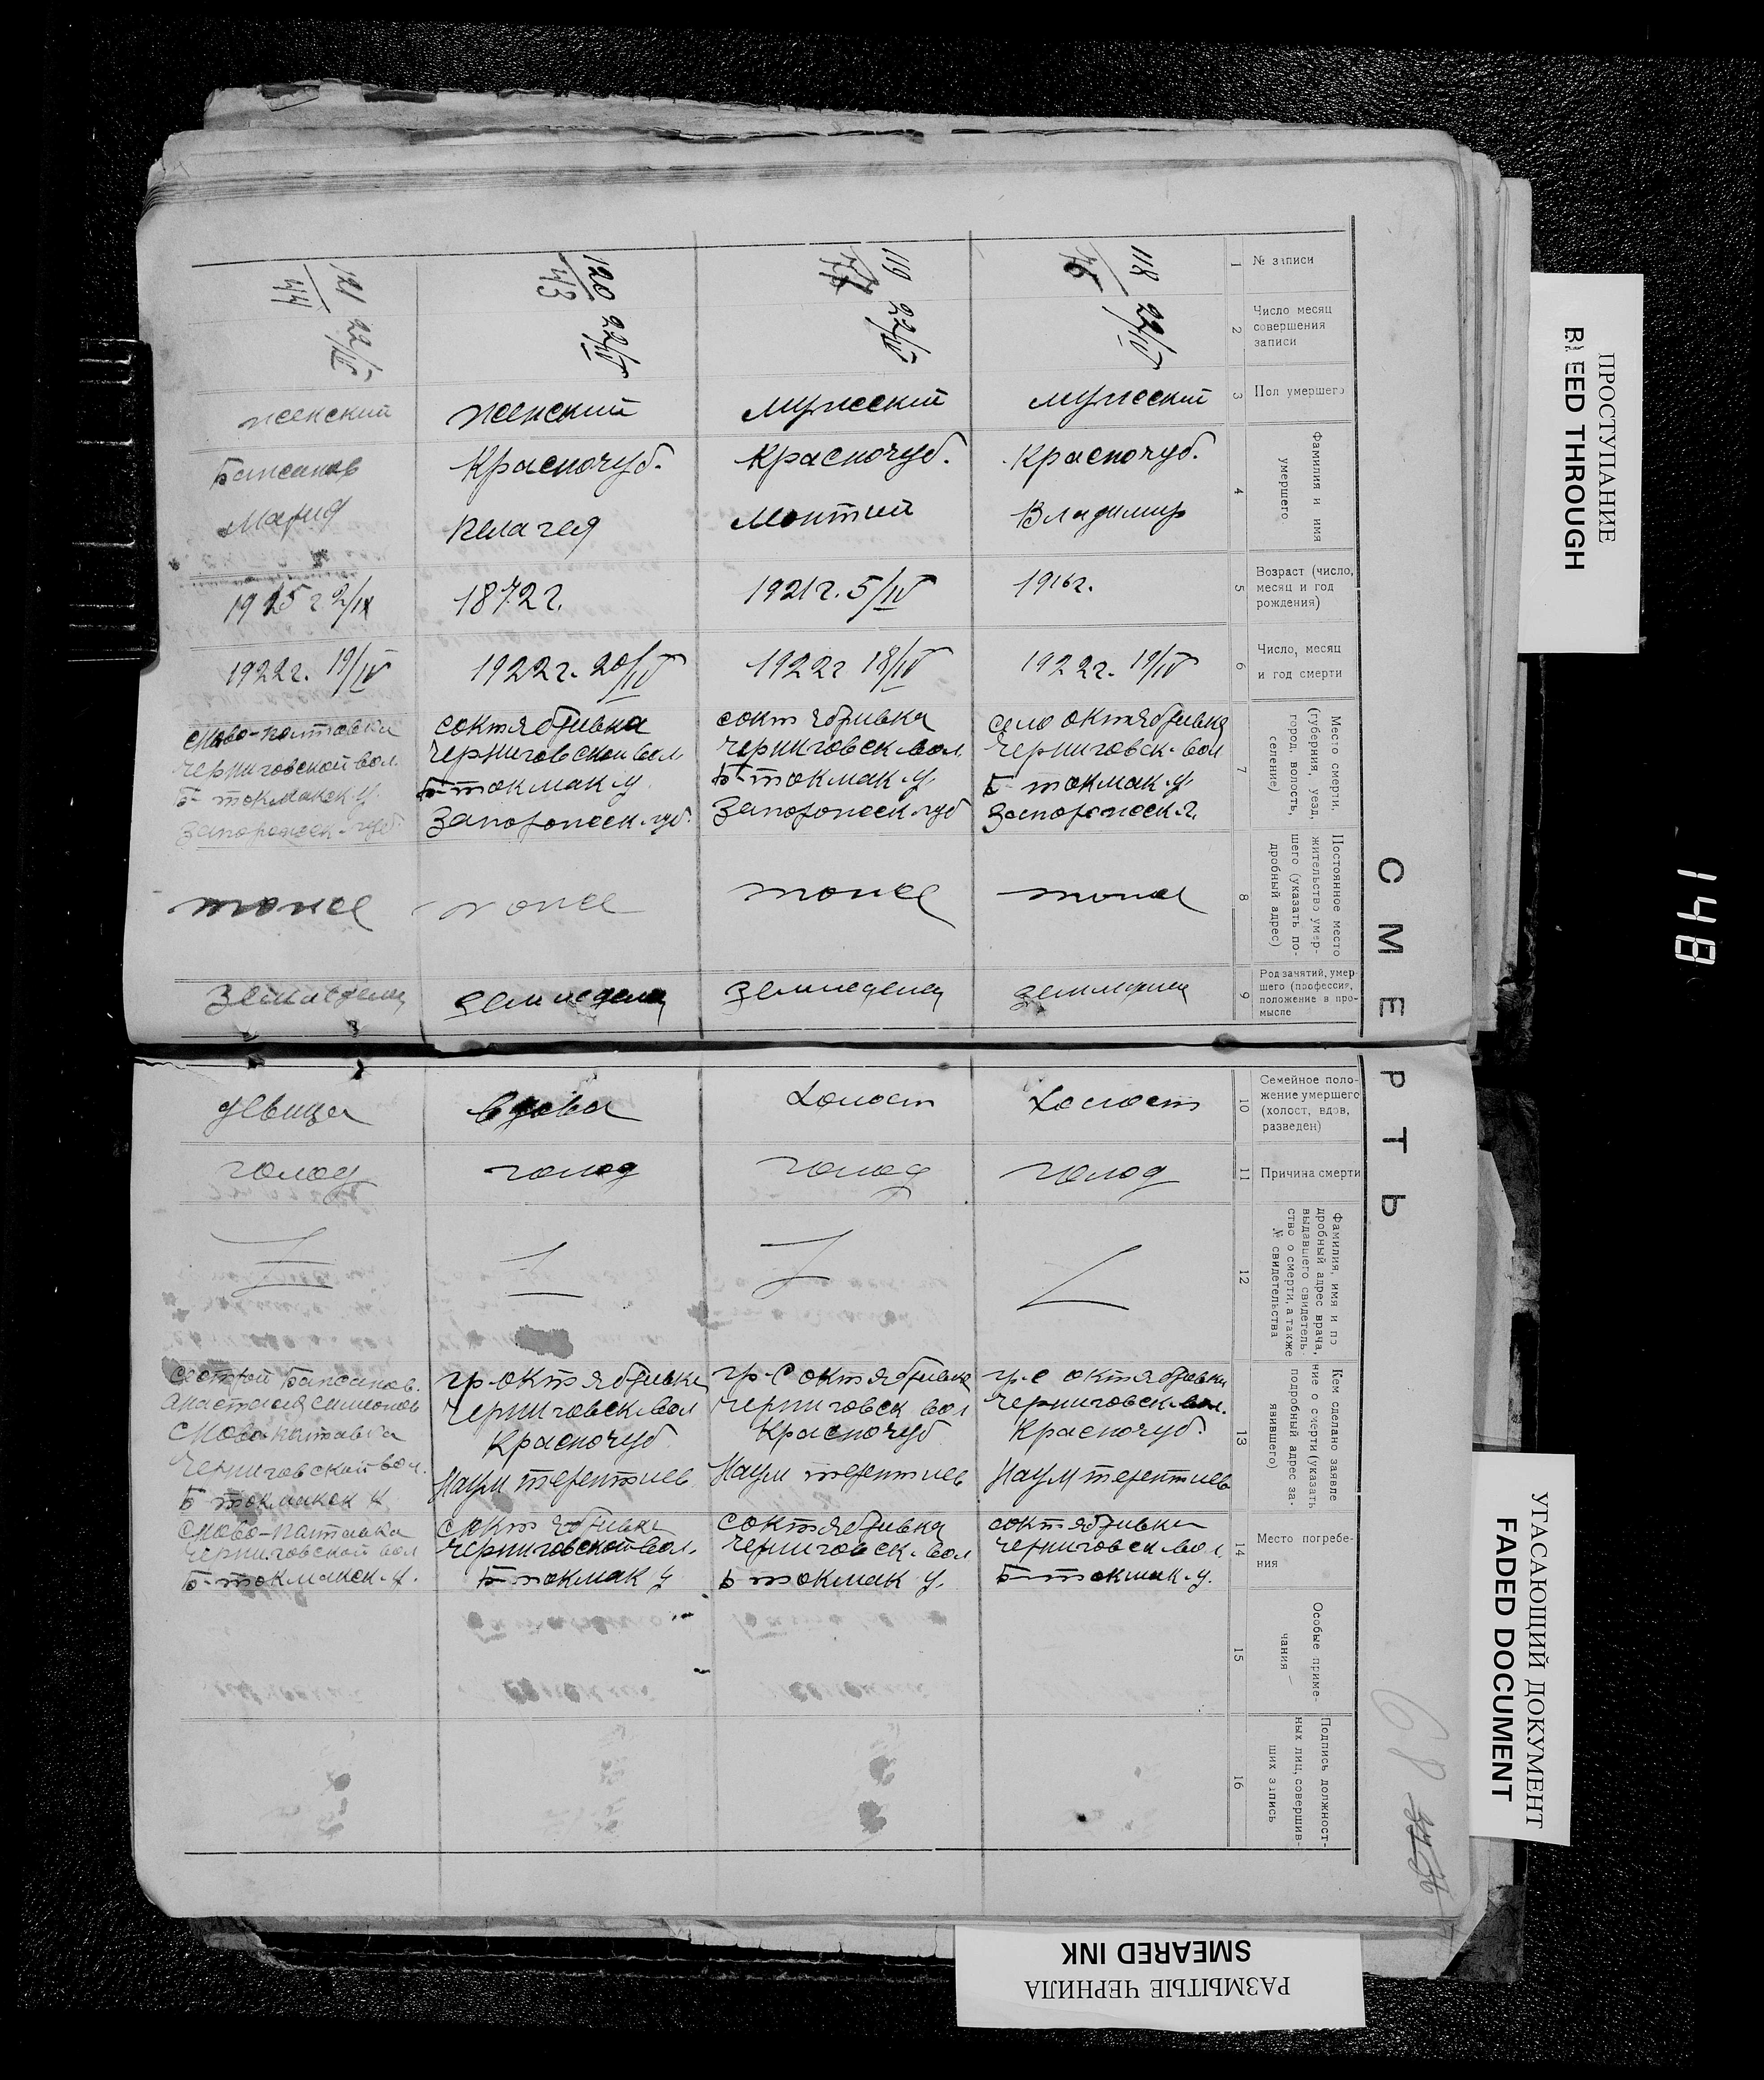 СМЕРТЬ
1
№ записи
2
Число месяц
совершения
записи
3
Пол умершего
4
Фамилия и имя
умершего
5
Возраст (число,
месяц и год
рождения)
6
Число, месяц
и год смерти
7
Место смерти.
(губерния, уезд,
город, волость,
селение)
8
Постоянное место
жительство умер-
шего (указать по-
дробный адрес)
9
Род занятий, умер-
шего (профессия,
положение в про-
мысле
10
Семейное поло-
жение умершего
(холост, вдов,
разведен)
11
Причина смерти
12
Фамилия, имя и по
дробный адрес врача,
выдавшего свидетель-
ство о смерти, а также
№ свидетельства
13
Кем сделано заявле
ние о смерти (указать
подробный адрес за-
явившего)
14
Место погребе-
ния
15
Особые приме-
чания
16
Подпись должност-
ных лиц, совершив-
ших запись
118
22/IV
мужский
Красночуб.
Владимир
1916 г.
1922 г. 19/IV
село Октябривка
Черниговск. вол
Б-токмак. у.
Запорожск. г.
тоже
земледелец
Холост
голод
гр. с Октябривки
Черниговск. вол.
Красночуб.
Наум терентиев
с Октябривка
Черниговск. вол.
Б-токмак. у.
119
22/IV
мужский
Красночуб.
1921 г. 5/IV
1922 г 18/IV
с Октябривка
Черниговск. вол.
Б-токмак. у.
Запорожск. губ
тоже
земледелец
Холост
голод
гр. с Октябривка
Черниговск вол
Красночуб
Наум терентиев
с Октябривка
Черниговск. вол
Б токмак у.
120
43
22/IV
женский
Красночуб.
Пелагея
1872 г.
1922 г. 20/IV
с Октябривка
Черниговской вол.
Б-токмак. у
Запорожск. губ.
тоже
земледелец
вдова
голод
гр. Октябривки
Черниговск. вол
Красночуб
Наум терентиев
с Октябривка
Черниговской вол.
Б-токмак у
121
44
22/IV
женский
Мария
1922 г. 19/IV
Черниговской вол.
Б-токмакск. у.
Запорожск. губ.
тоже
земледелец
девица
голод
сестрой
Анастасия Симонов
Черниговской вол.
Б токмакск у
Черниговской вол
Б-токмакск. у.
68
148
ПРОСТУПАНИЕ
BLEED THROUGH
УГАСАЮЩИЙ ДОКУМЕНТ
FADED DOCUMENT
РАЗМЫТЫЕ ЧЕРНИЛА
SMEARED INK